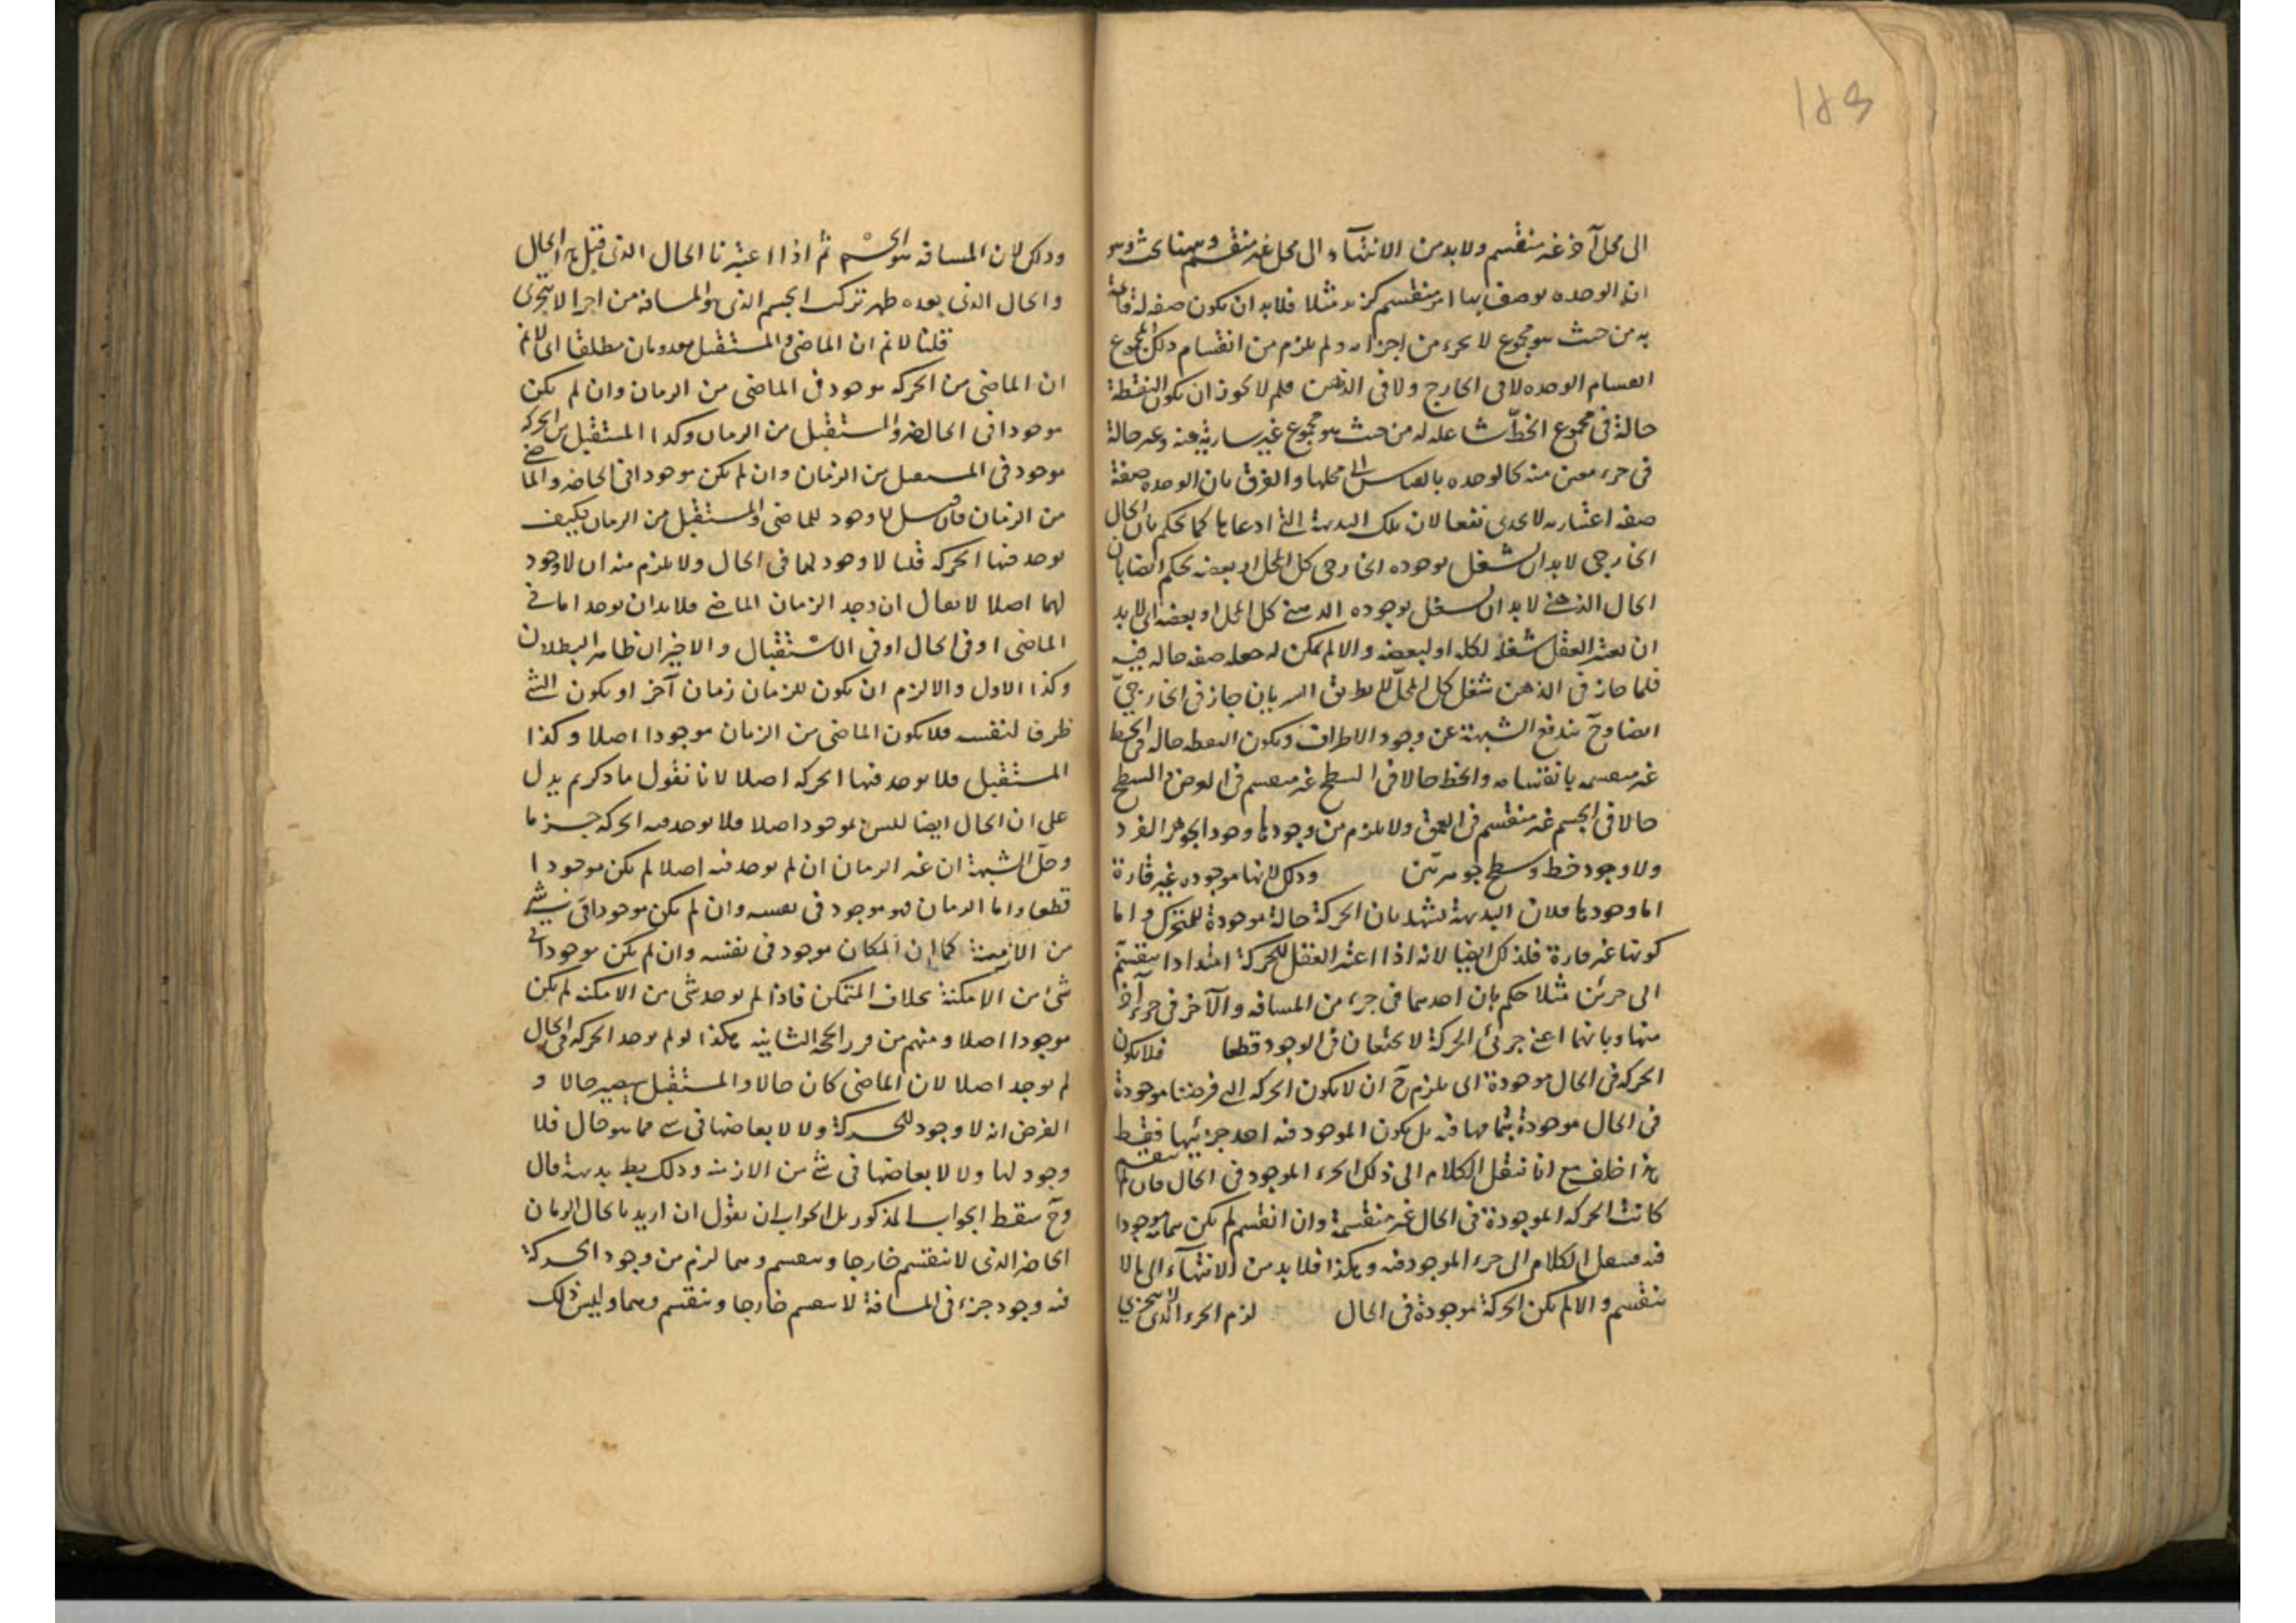 ١٨٥
الى محل آخر غير منقسم ولا بد من الانتهاء الى محل غير منقسم وههنا بحث وهو
ان الوحدة يوصف بها امر منقسم كزيد مثلا فلا بد ان تكون صفة له قائمة
به من حيث هو مجموع لا بجزء من اجزائه ولم يلزم من انقسام ذلك المجموع
انقسام الوحدة لا في الخارج ولا في الذهن فلم لا يجوز ان يكون النقطة
حالة في مجموع الخط شاغلة له من حيث هو مجموع غير سارية فيه وغير حالة
في جزء معين منه كالوحدة بالقياس الى محلها والفرق بان الوحدة صفة
صفة اعتبارية لا يجدي نفعا لان تلك البديهة التي ادعاها كما يحكم بان الحال
الخارجي لا بد ان يشغل بوجوده الخارجي كل المحل او بعضه يحكم ايضا بان
الحال الذهني لا بد ان يشغل بوجوده الذهني كل المحل او بعضه اي لا بد
ان يعتبر العقل شغله لكله او لبعضه والا لم يمكن له جعله صفة حالة فيه
فلما جاز في الذهن شغل كل المحل لا بطريق السريان جاز في الخارجي
ايضا وح يندفع الشبهة عن وجود الاطراف ويكون النقطة حالة في الخط
غير منقسمة بانقسامه والخط حالا في السطح غير منقسم في العرض والسطح
حالا في الجسم غير منقسم في العمق ولا يلزم من وجودها وجود الجوهر الفرد
ولا وجود خط وسطح جوهريين وذلك لانها موجودة غير قارة
اما وجودها فلان البديهة تشهد بان الحركة حالة موجودة للمتحرك واما
كونها غير قارة فلذلك ايضا لانه اذا اعتبر العقل للحركة امتدادا ينقسم
الى جزئين مثلا حكم بان احدهما في جزء من المسافة والآخر في جزء آخر
منها وبانهما اعني جزئي الحركة لا يجتمعان في الوجود قطعا فلا يكون
الحركة في الحال موجودة اي يلزم ح ان لا يكون الحركة التي فرضنا موجودة
في الحال موجودة بتمامها فيه بل يكون الموجود فيه احد جزئيها فقط
هذا خلف مع انا ننقل الكلام الى ذلك الجزء الموجود في الحال فان لم ينقسم
كانت الحركة الموجودة في الحال غير منقسمة وان انقسم لم يكن بتمامه موجودا
فيه فننقل الكلام الى جزء الموجود فيه وهكذا فلا بد من الانتهاء الى ما لا
ينقسم والا لم يكن الحركة موجودة في الحال لزم الجزء الذي لا يتجزى
وذلك لان المسافة هو الجسم ثم اذا اعتبرنا الحال الذي قبل هذا الحال
والحال الذي بعده ظهر تركب الجسم الذي هو المسافة من اجزاء لا يتجزى
قلنا لا نم ان الماضي والمستقبل معدومان مطلقا اي لا نم
ان الماضي من الحركة موجود في الماضي من الزمان وان لم يكن
موجودا في الحاضر والمستقبل من الزمان وكذا المستقبل من الحركة
موجود في المستقبل من الزمان وان لم يكن موجودا في الحاضر والماضي
من الزمان فان قيل لا وجود للماضي والمستقبل من الزمان فكيف
يوجد فيها الحركة قلنا لا وجود لهما في الحال ولا يلزم منه ان لا وجود
لهما اصلا لا يقال ان وجد الزمان الماضي فلا بد ان يوجد اما في
الماضي او في الحال او في الاستقبال والاخيران ظاهر البطلان
وكذا الاول والا لزم ان يكون للزمان زمان آخر او يكون الشئ
ظرفا لنفسه فلا يكون الماضي من الزمان موجودا اصلا وكذا
المستقبل فلا يوجد فيها الحركة اصلا لانا نقول ما ذكرتم يدل
على ان الحال ايضا ليس بموجود اصلا فلا يوجد فيه الحركة جزما
وحل الشبهة ان غير الزمان ان لم يوجد فيه اصلا لم يكن موجودا
قطعا واما الزمان فهو موجود في نفسه وان لم يكن موجودا في شئ
من الازمنة كما ان المكان موجود في نفسه وان لم يكن موجودا في
شئ من الامكنة بخلاف المتمكن فاذا لم يوجد شئ من الامكنة لم يكن
موجودا اصلا ومنهم من قرر الحجة الثانية هكذا لو لم يوجد الحركة في الحال
لم يوجد اصلا لان الماضي كان حالا والمستقبل سيصير حالا و
الفرض انه لا وجود للحركة ولا لابعاضها في شئ مما هو حال فلا
وجود لها ولا لابعاضها في شئ من الازمنة وذلك بط بديهة قال
وح سقط الجواب المذكور بل الجواب ان نقول ان اريد بالحال الزمان
الحاضر الذي لا ينقسم خارجا وينقسم وهما لزم من وجود الحركة
فيه وجود جزء في المسافة لا ينقسم خارجا وينقسم وهما وليس ذلك